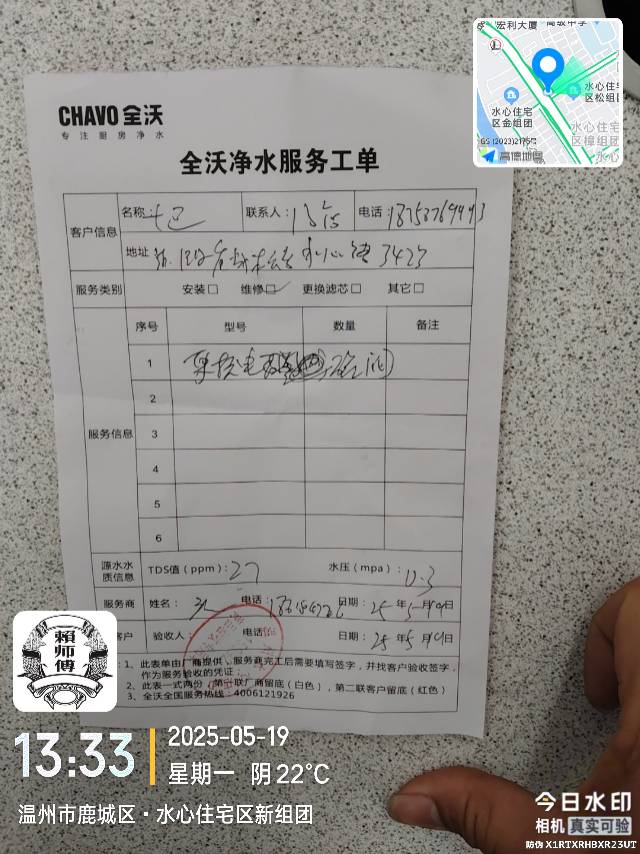 宏利大厦
水心住宅区金组团
水心住宅区松组团
水心住宅区樟组团
水心
GS (2023)2175号
高德地图
CHAVO全沃
专注厨房净水
全沃净水服务工单
客户信息
名称
联系人：
电话：
地址 水心 3423
服务类别 安装□ 维修□✓ 更换滤芯□ 其它□
服务信息
序号 型号 数量 备注
1
2
3
4
5
6
源水水质信息
TDS值（ppm）：27 水压（mpa）：0.3
服务商 姓名： 电话： 日期：25年5月19日
客户 验收人： 电话： 日期：25年5月19日
1、此表单由厂商提供，服务商完工后需要填写签字，并找客户验收签字，
作为服务验收的凭证
2、此表一式两份，第一联厂商留底（白色），第二联客户留底（红色）
3、全沃全国服务热线：4006121926
賴师傅
13:33
2025-05-19
星期一 阴 22℃
温州市鹿城区·水心住宅区新组团
今日水印
相机 真实可验
防伪 X1RTXRHBXR23UT